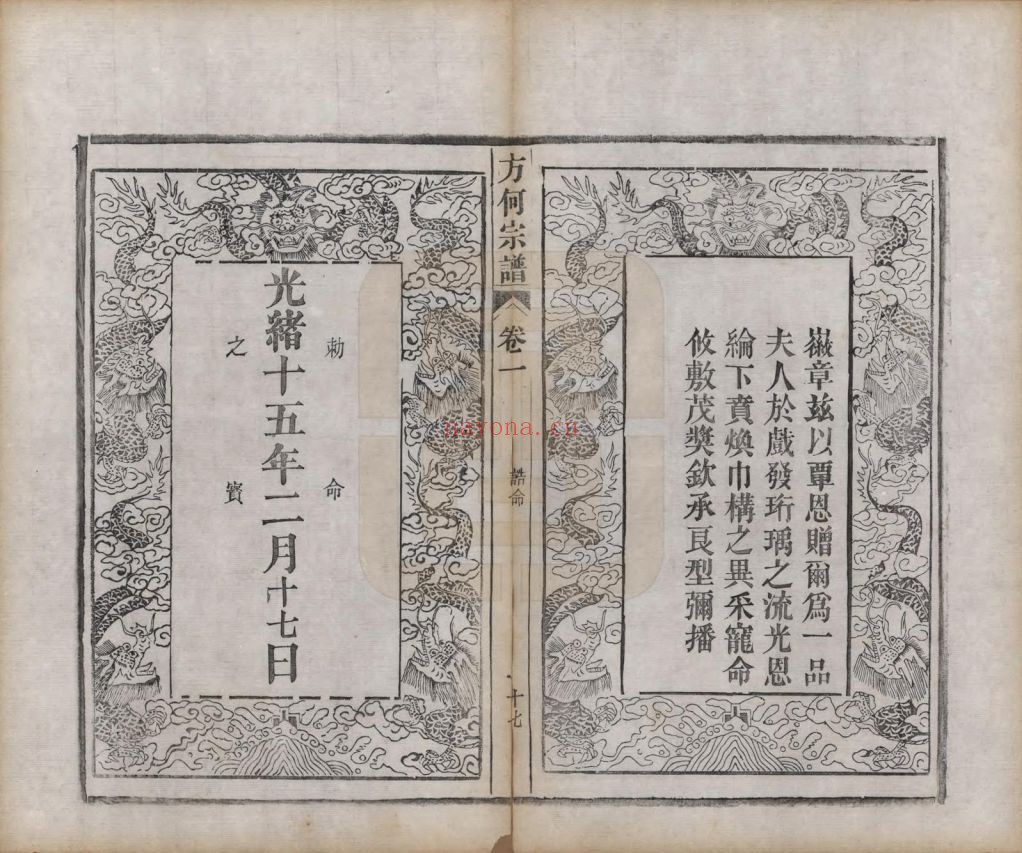 徽章茲以覃恩贈爾為一品
夫人於戲發珩瑀之流光恩
綸下賁煥巾構之異采寵命
攸敷茂獎欽承良型彌播
方何宗譜
卷一
誥命
十七
勅命
光緒十五年二月十七日
之寶
nayona.cn